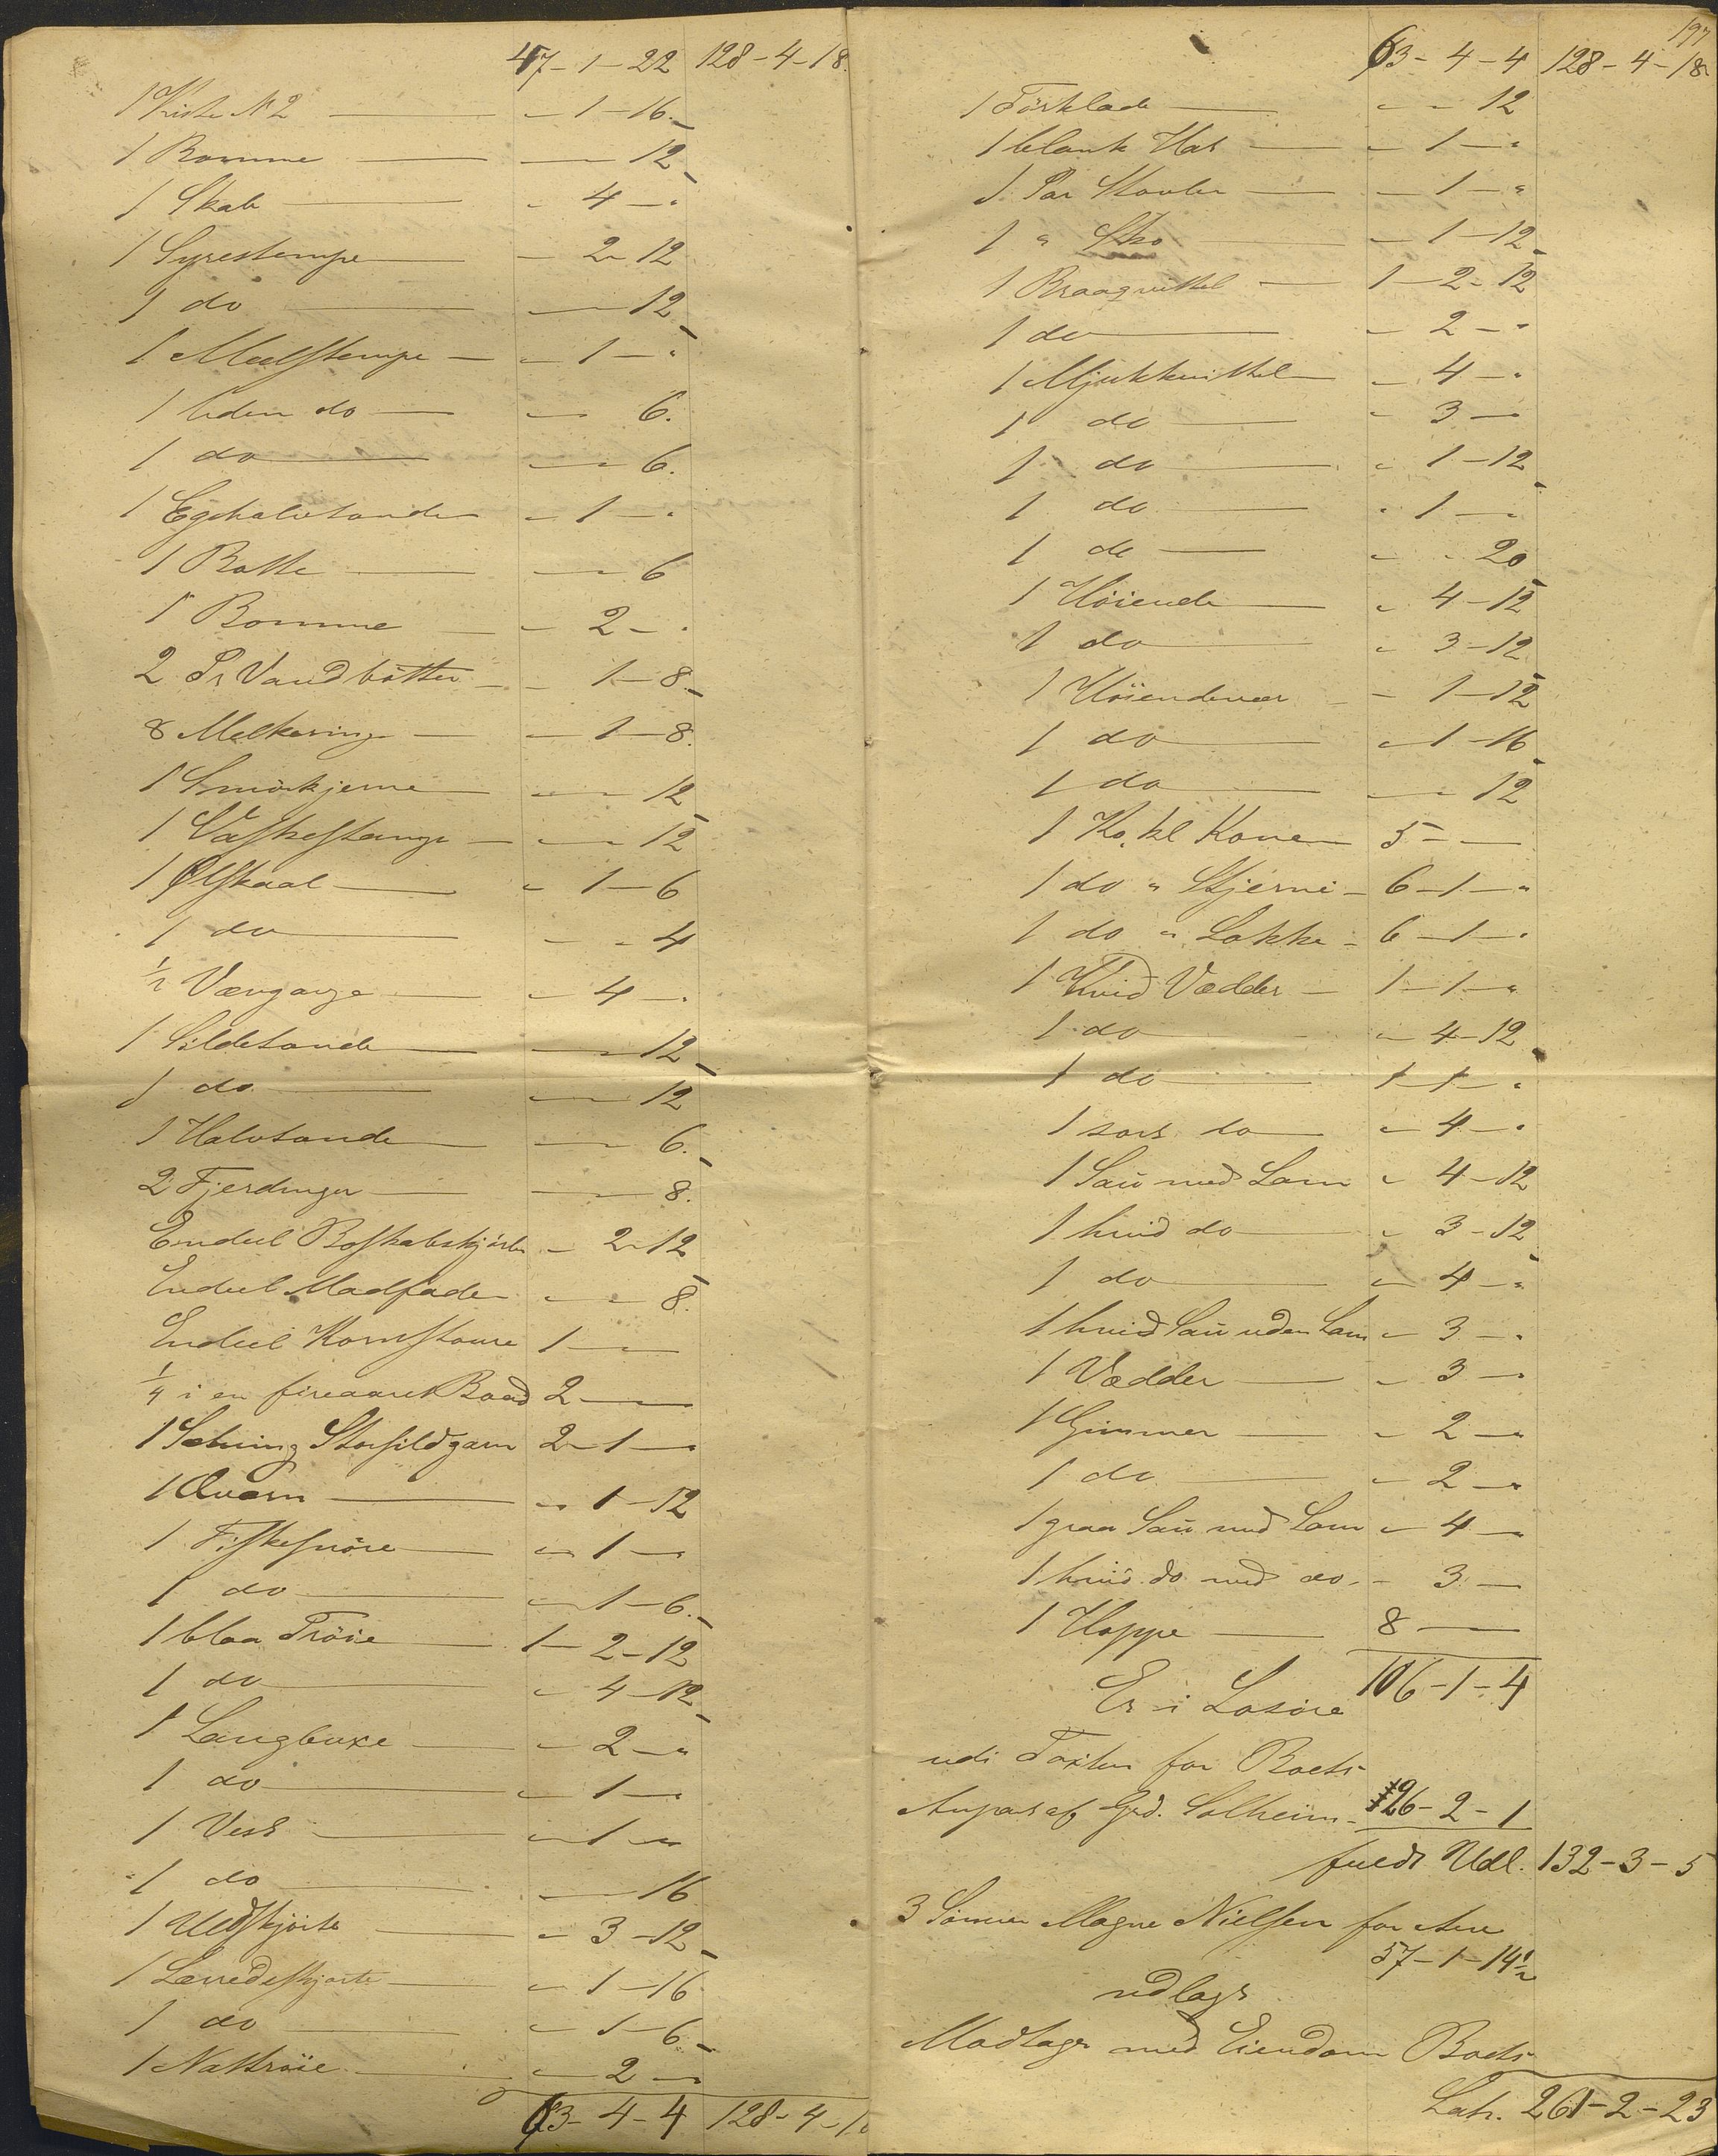 47-1-22 128-4-18.
1 Kiste N 2 — " 1-16.
1 Bomme — " " 12
1 Skab — " 4 - "
1 Syrestampe — " 2-12
1 do — " " 12
1 Meelstampe — " 1 - "
1 liden do — " " 6.
1 do — " " 6.
1 Egehalvtønde — " 1 - "
1 Botte — " " 6
1 Bomme — " 2 - "
2 Pr Vandbøtter — " 1-8.
8 Melkeringe — " 1-8.
1 Smørkjerne — " " 12
1 Vaskestamp — " " 12
1 Ølskaal — " 1-6
1 do — " " 4
1/2 Vævgange — " 4 - "
1 Sildetønde — " " 12
1 do — " " 12
1 Halvtønde — " " 6.
2 Fjerdinger — " " 8.
Endeel Boskabskjørler " 2-12
Endeel Madfade — " " 8.
Endeel Kornstaure 1 - "
1/4 i en fireaaret Baad 2 - "
1 Sætning Storsildgarn 2-1 - "
1 Qværn — " 1-12
1 Fiskesnøre — " 1 - "
1 do — " 1-6.
1 blaa Trøie — 1-2-12
1 do — " 4-12
1 Langbuxe — " 2 - "
1 do — " 1 - "
1 Vest — " 1 - "
1 do — " " 16
1 Uldskjørte — " 3-12
1 Lærredsskjorte — " 1-16
1 do — " 1-6
1 Nattrøie — " 2 - "
63-4-4 128-4-18
197
63-4-4 128-4-18
1 Førklade — " " 12
1 blank Hat — " 1 - "
1 Par Støvler — " 1 - "
1 " Sko — " 1-12
1 Braagvittel — 1-2-12
1 do — " 2 - "
1 Mjukkvittel — " 4 - "
1 do — " 3 - "
1 do — " 1-12
1 do — " 1 - "
1 do — " " 20
1 Høiende — " 4-12
1 do — " 3-12
1 Høiendevær — " 1-12
1 do — " 1-16
1 do — " " 12
1 Ko, kl Konen 5 - "
1 do " Stjerne - 6-1 - "
1 do " Løkke - 6-1 - "
1 Hvid Vædder — 1-1 - "
1 do — " 4-12
1 do — 1-1 - "
1 sort do — " 4 - "
1 Sau med Lam " 4-12
1 hvid do — " 3-12
1 do — " 4 - "
1 hvid Sau uden Lam " 3 - "
1 Vædder — " 3 - "
1 Gimmer — " 2 - "
1 do — " 2 - "
1 graa Sau med Lam " 4 - "
1 hvid do med do. - 3 - "
1 Hoppe — 8 - "
Er i Løsøre 106-1-4
udi Taxten for Boets
Anpart af Grd. Solheim - 26-2-1
fuldt Udl. 132-3-5
3 Sønnen Magne Nielsen for Arv
57-1-14 1/2
udlagt
Modtager med Eiendom Boets
Lat. 261-2-23